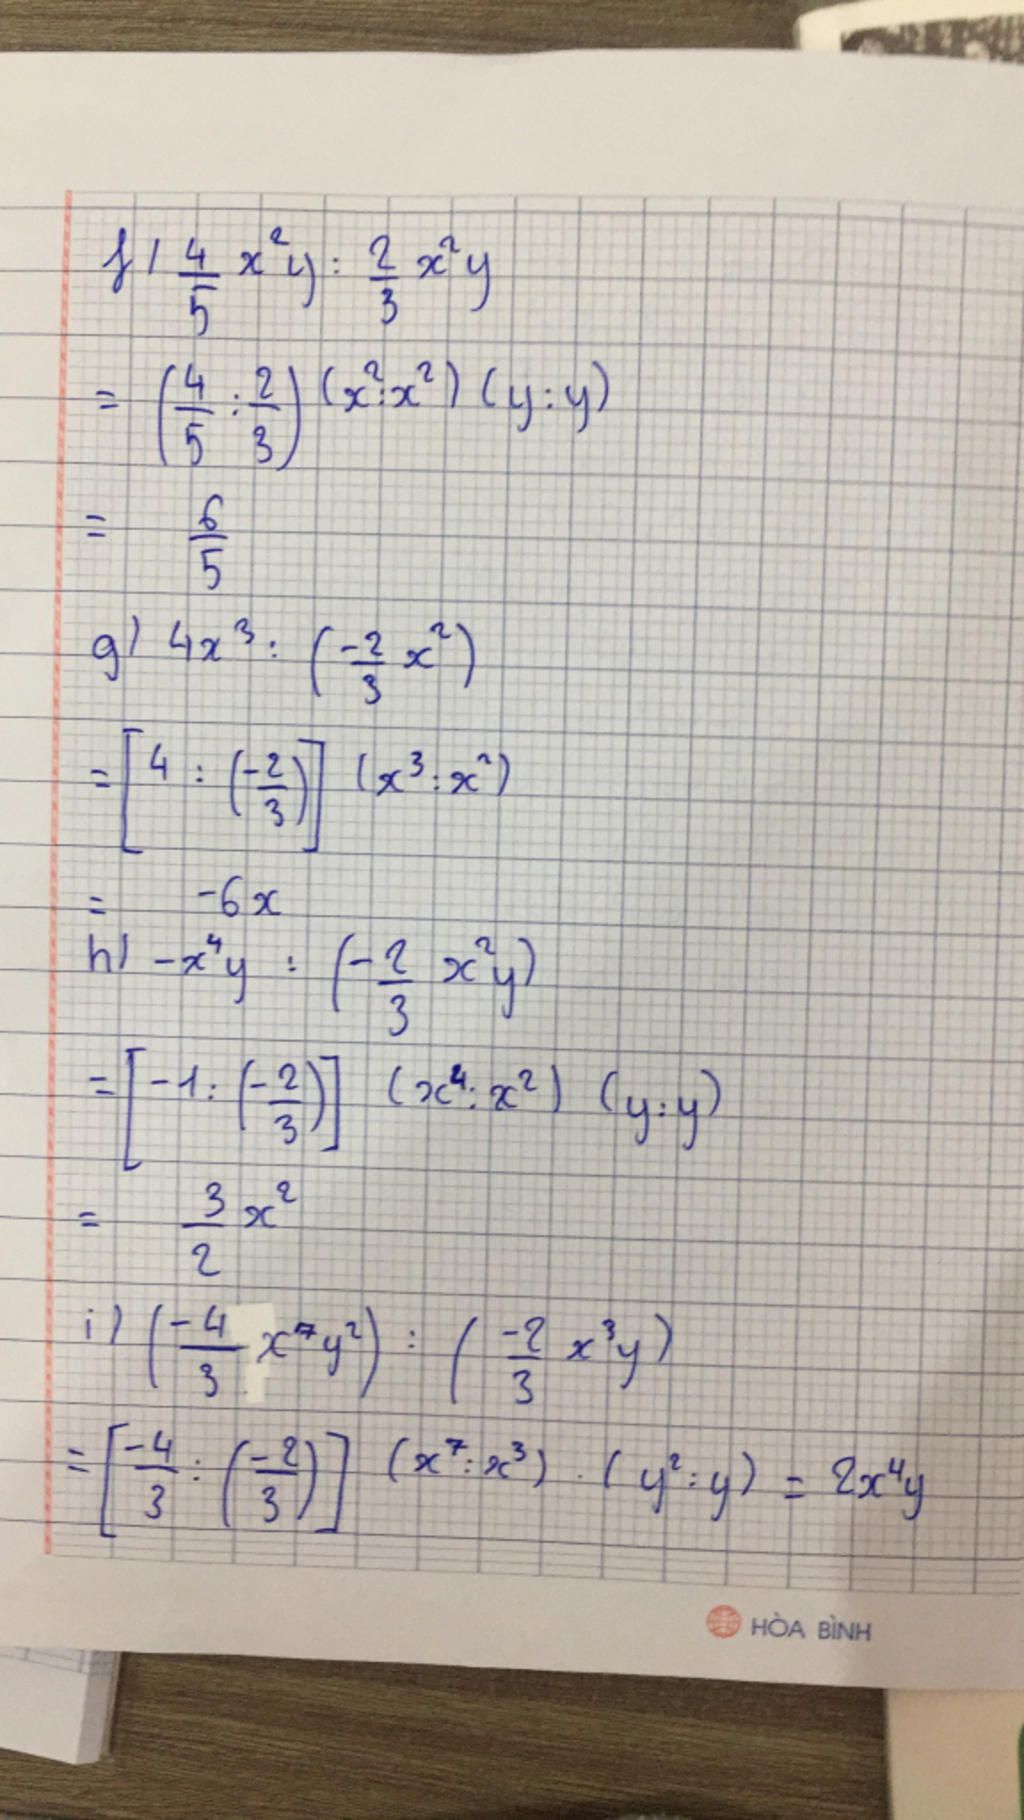 f) 4/5 x²y : 2/3 x²y
= (4/5 : 2/3) (x² : x²) (y : y)
= 6/5
g) 4x³ : (-2/3 x²)
= [4 : (-2/3)] (x³ : x²)
= -6x
h) -x⁴y : (-2/3 x²y)
= [-1 : (-2/3)] (x⁴ : x²) (y : y)
= 3/2 x²
i) (-4/3 x⁷y²) : (-2/3 x³y)
= [-4/3 : (-2/3)] (x⁷ : x³) . (y² : y) = 2x⁴y
HÒA BÌNH